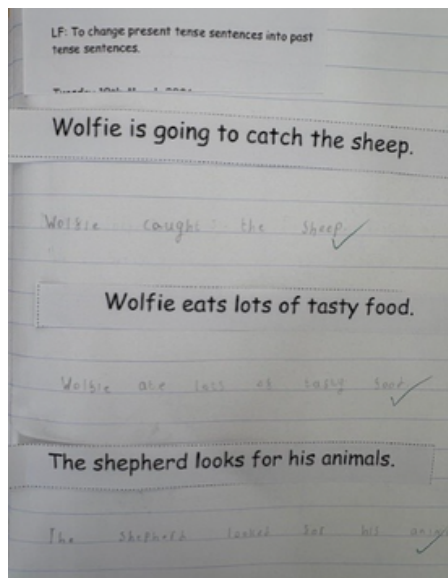 LF: To change present tense sentences into past
tense sentences.
Wolfie is going to catch the sheep.
Wolfie caught the sheep.
Wolfie eats lots of tasty food.
Wolfie ate lots of tasty food.
The shepherd looks for his animals.
The shepherd looked for his